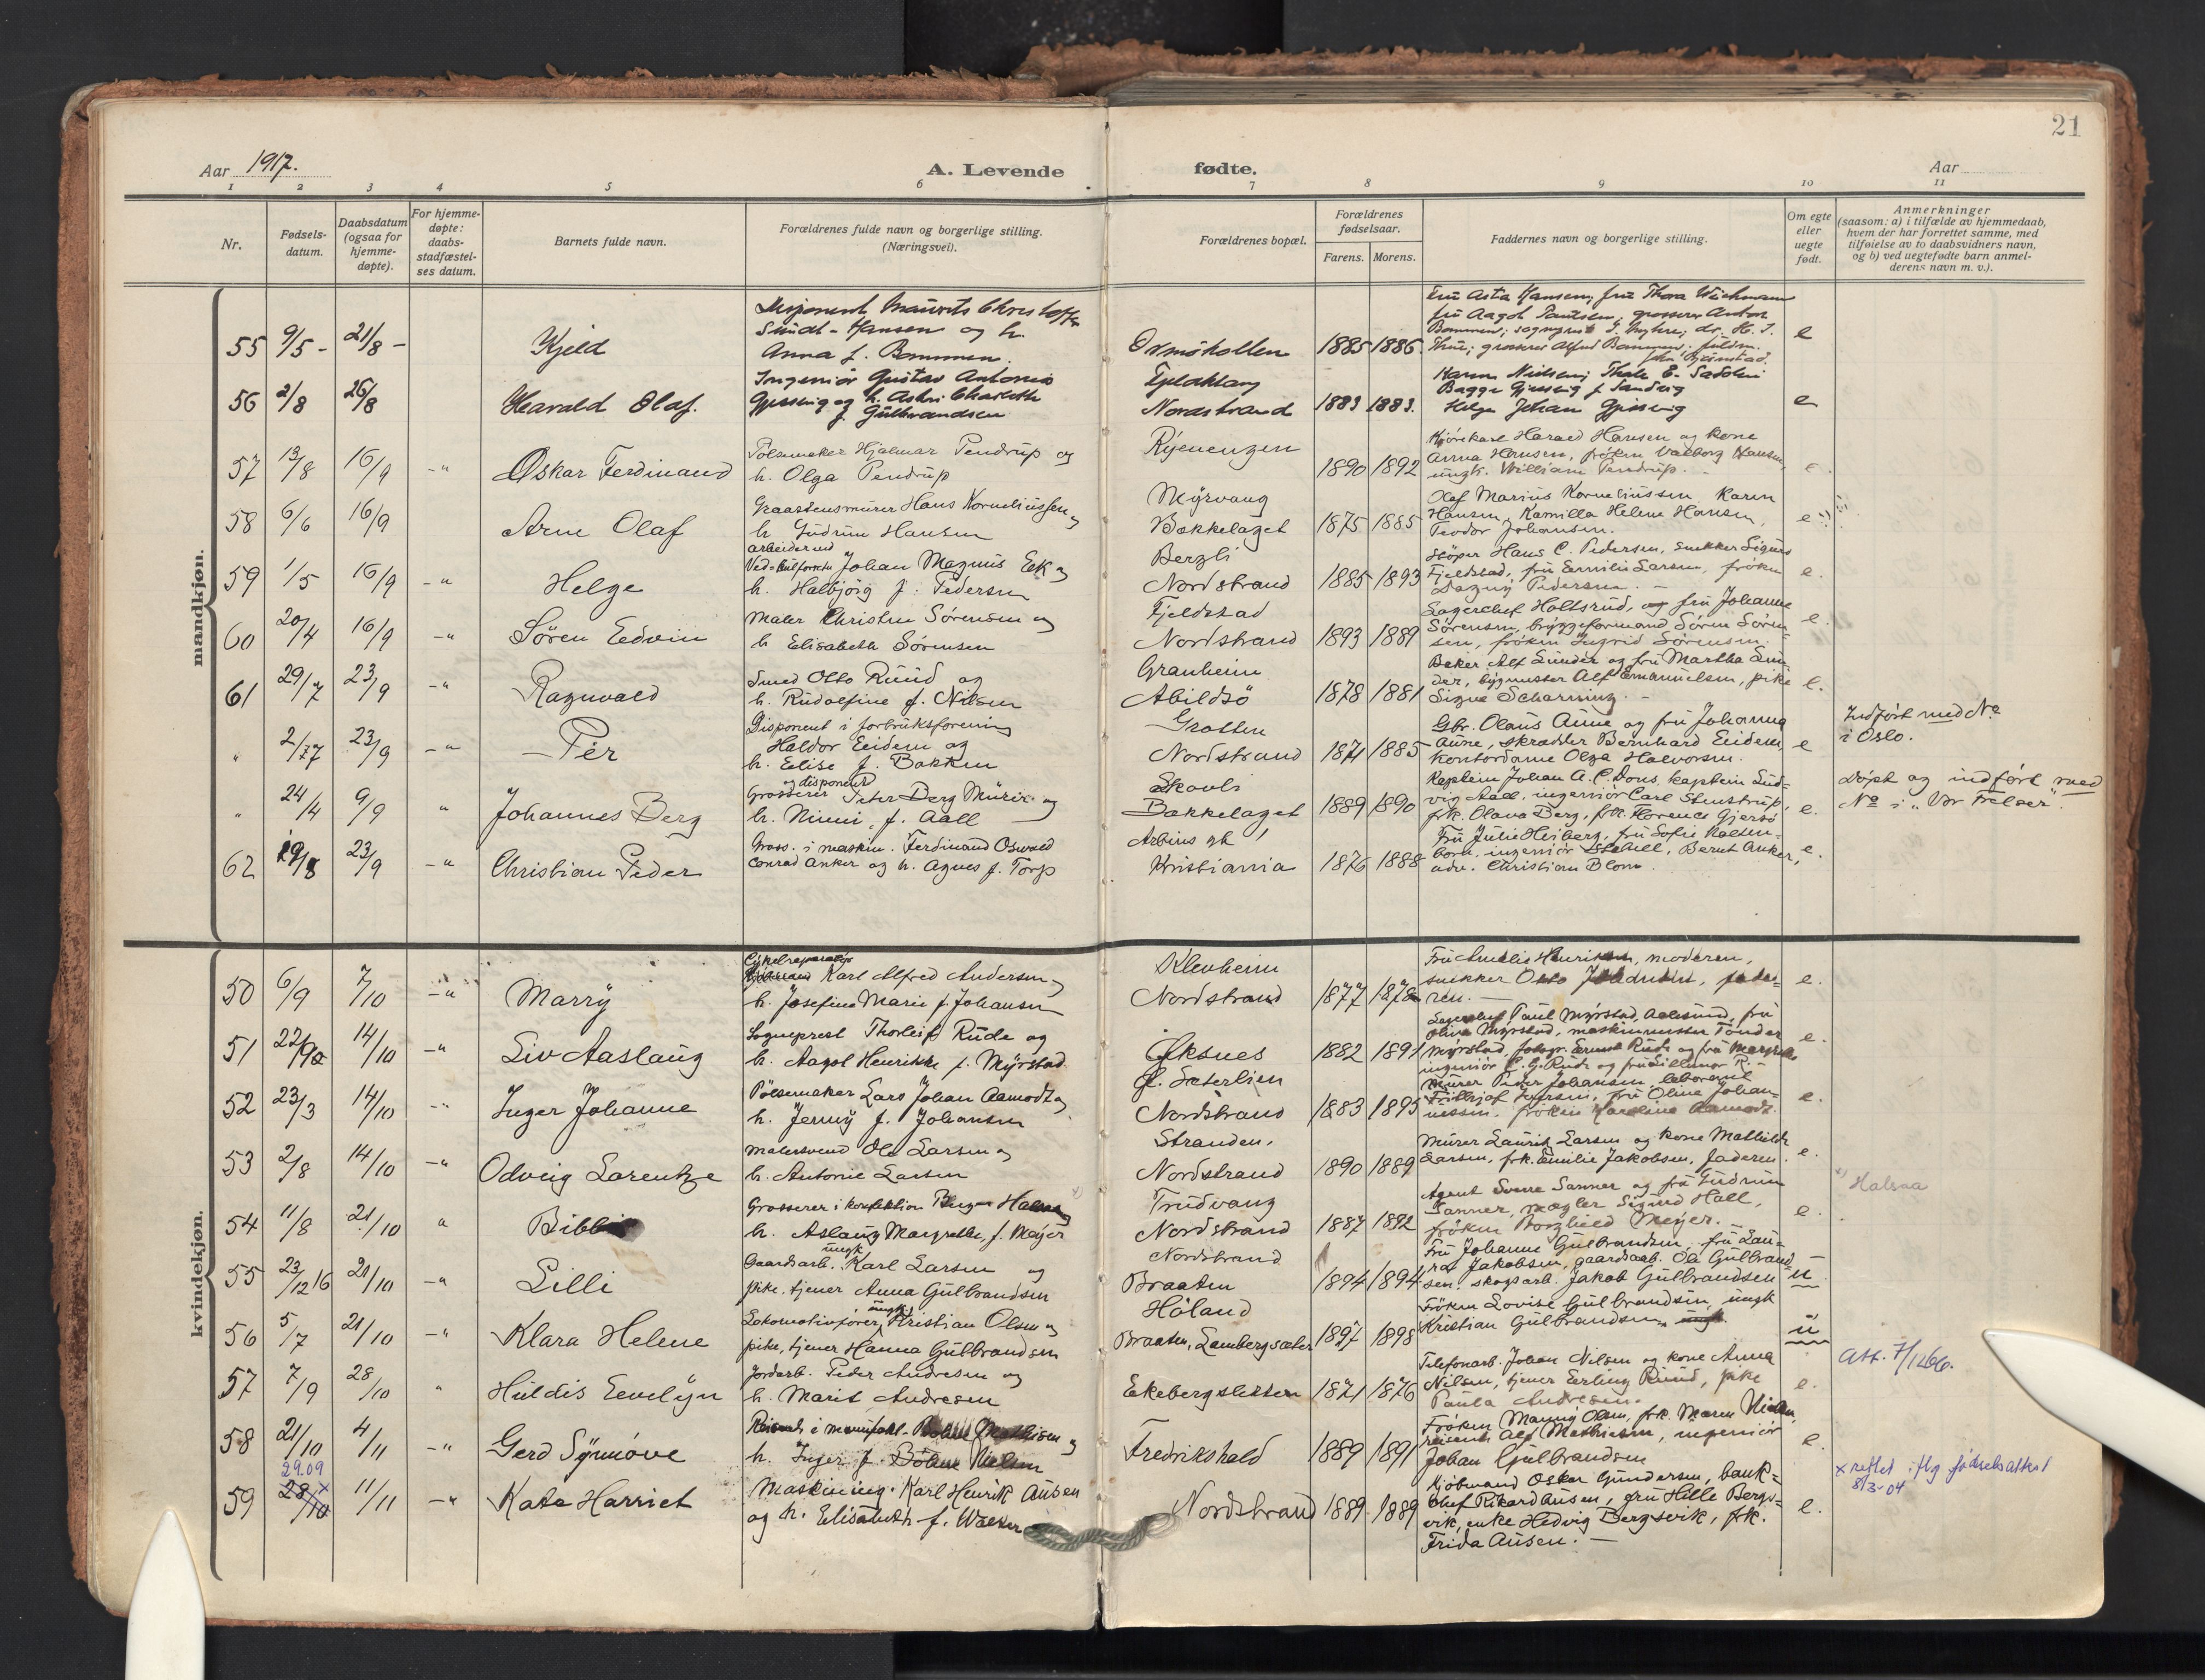 21
Aar 1917.
A. Levende
fødte.
Aar
1 2 3 4 5 6 7 8 9 10 11
Nr.
Fødsels-
datum.
Daabsdatum
(ogsaa for
hjemme-
døpte).
For hjemme-
døpte:
daabs-
stadfæstel-
ses datum.
Barnets fulde navn.
Forældrenes fulde navn og borgerlige stilling.
(Næringsvei).
Forældrenes bopæl.
Forældrenes
fødselsaar.
Farens. Morens.
Faddernes navn og borgerlige stilling.
Om egte
eller
uegte
født.
Anmerkninger
(saasom: a) i tilfælde av hjemmedaab,
hvem der har forrettet samme, med
tilføielse av to daabsvidners navn,
og b) ved uegtefødte barn anmel-
derens navn m. v.).
mandkjøn.
55 9/5 - 21/8 - Kjeld
Disponent Maurits Christoffer
Sundt-Hansen og h.
Anna f. Bommen.
Ormøkollen 1885 1886
Fru Asta Hansen, fru Thora Wichmann
fru Aagot Paulsen; grosserer Anton
e
56 2/8 26/8 Harald Olaf.
Ingeniør Gustav Antonio
Gjessing og h. Astri Charlotte
f. Gulbrandsen
Nordstrand 1883 1883.
Helge Johan Gjessing
e
57 13/8 16/9 -"- Oskar Ferdinand
Pølsemaker Hjalmar Pendrup og
h. Olga Pendrup
Ryenengen 1890 1892
Kjørekarl Harald Hansen og kone
Anna Hansen, frøken Valborg Hansen,
ungk. William Pendrup. -
e.
58 6/6 16/9 Arne Olaf
Graastensmurer Hans Korneliussen og
h. Gudrun Hansen
Myrvang
Bækkelaget 1875 1885
Olaf Marius Korneliussen, Karen
Hansen, Kamilla Helene Hansen,
Teodor Johansen.
e
59 1/5 16/9 -"- Helge
arbeider ved
Johan Magnus Eek og
h. Halbjørg f. Pedersen
Bergli
Nordstrand 1885 1893
Støper Hans C. Pedersen, snekker Sigurd
Fjeldstad, fru Emilie Larsen, frøken
Dagny Pedersen. -
e.
60 20/4 16/9 -"- Søren Edvin
Maler Christen Sørensen og
h Elisabeth Sørensen
Fjeldstad
Nordstrand 1893 1889
Lagerchef Holtsrud, og fru Johanne
Sørensen, bryggeformand Søren Søren-
sen, frøken Ingrid Sørensen.
e.
61 29/7 23/9 -"- Ragnvald
Smed Otto Ruud og
h. Rudolfine f. Nilsen
Granheim
Abildsø 1878 1881
Baker Alf Lunder og fru Martha Lun-
der, bygmester Alf Emanuelsen, pike
Signe Scharning. -
e.
" 2/7 23/9 -"- Per
Disponent i forbruksforening
Haldor Eidem og
h. Elise f. Bakken
Grotten
Nordstrand 1871 1885
Gbr. Olaus Aune og fru Johanna
Aune, skrædder Bernhard Eidem,
kontordame Olga Halvorsen.
e
Indført med No
i Oslo.
" 24/4 9/9 " Johannes Berg
og disponent
Grosserer Peter Berg Mürer og
h. Ninni f. Aall
Skovli
Bækkelaget 1889 1890
Kaptein Johan A. C. Dons, kaptein Lud-
vig Aall, ingeniør Carl Stenstrup,
frk. Olava Berg, frk. Florence Gjersø
e.
Døpt og indført med
No i "Vor Frelser".
62 19/8 23/9 -"- Christian Peder
Gross. i maskin. Ferdinand Oswald
Conrad Anker og h. Agnes f. Torp
Arbins gt
Kristiania 1876 1888
Fru Julie Heiberg, fru Sofie
born, ingeniør Bernt Anker,
adv. Christian Blom
e.
kvindekjøn.
50 6/9 7/10 -"- Marry
Cykelreparatør
Karl Alfred Andersen og
h. Josefine Marie f. Johansen
Klevheim
Nordstrand 1877 1878
Fru Amalie Henriksen, moderen,
snekker Otto, fade-
ren. -
e.
51 14/10 -"- Liv Aaslaug
Sogneprest Thorleif Rude og
h. Aagot Henrikke f. Myrstad
Øksnes 1882 1891
Paul Myrstad, Aalesund, fru
Oliva Myrstad, maskinmester Tønder
Myrstad, fotogr. Ernst Rude og fru Margrete
ingeniør C. G. Rude og fru Ellinor R. -
e.
52 23/3 14/10 -"- Inger Johanne
Pølsemaker Lars Johan Aamodt og
h. Jenny f. Johansen
Gl. Sæterlien
Nordstrand 1883 1895
Murer Peder Johansen, laborant
fru Oline Johan-
nessen, frøken Karoline Aamodt.
e.
53 2/8 14/10 -"- Odveig Larentze
Malersvend Ole Larsen og
h. Antonie Larsen
Stranden,
Nordstrand 1890 1889
Murer Laurits Larsen og kone Mathilde
Larsen, frk. Emilie Jakobsen, faderen.
e.
54 11/8 21/10 " Bibbi
Grosserer i konfektion Birger
h. Aslaug Margrethe, f. Meyer
Trudvang
Nordstrand 1887 1892
Agent Sverre Sanner og fru Gudrun
Sanner, mægler Sigurd Hall,
frøken Borghild Meyer. -
e.
x) Halsaa
55 23/12 16 21/10 -"- Lilli
ungk
Gaardsarb. Karl Larsen og
pike, tjener Anna Gulbrandsen
Nordstrand
Braaten 1894 1894
Fru Johanne Gulbrandsen, fru Lau-
ra Jakobsen, gaardsarb. Ole Gulbrand-
sen, skogsarb. Jakob Gulbrandsen
u
56 5/7 21/10 -"- Klara Helene
ungk
Lokomotivfører, Kristian Olsen og
pike, tjener Hanna Gulbrandsen
Høland
Braaten, Lambergsæter 1897 1898
Frøken Lovise Gulbrandsen, ungk
Kristian Gulbrandsen,
u
Att. 7/12 66.
57 7/9 28/10 " Huldis Eevelyn
Jordarb. Peder Andresen og
h. Marit Andresen
Ekebergsletten 1871 1876
Telefonarb. Johan Nilsen og kone Anna
Nilsen, tjener Erling Ruud, pike
Paula Andresen.
e.
58 21/10 4/11 -"- Gerd Synnøve
Mathisen og
h. Inger f. Nielsen
Fredrikshald 1889 1891
Frøken Manny Olsen, frk. Maren Nielsen,
reisende Alf Mathiesen, ingeniør
Johan Gulbrandsen
e.
59 29.09 28/10 x 11/11 -"- Kate Harriet
Maskining. Karl Henrik Ausen
og h. Elisabeth f. Walker
Nordstrand 1889 1889
Kjøbmand Oskar Gundersen, bank-
chef Rikard Ausen, fru Hille Bergs-
vik, enke Hedvig Bergsvik, frk.
Frida Ausen. -
e.
x rettet iflg fødselsattest
8/3-04